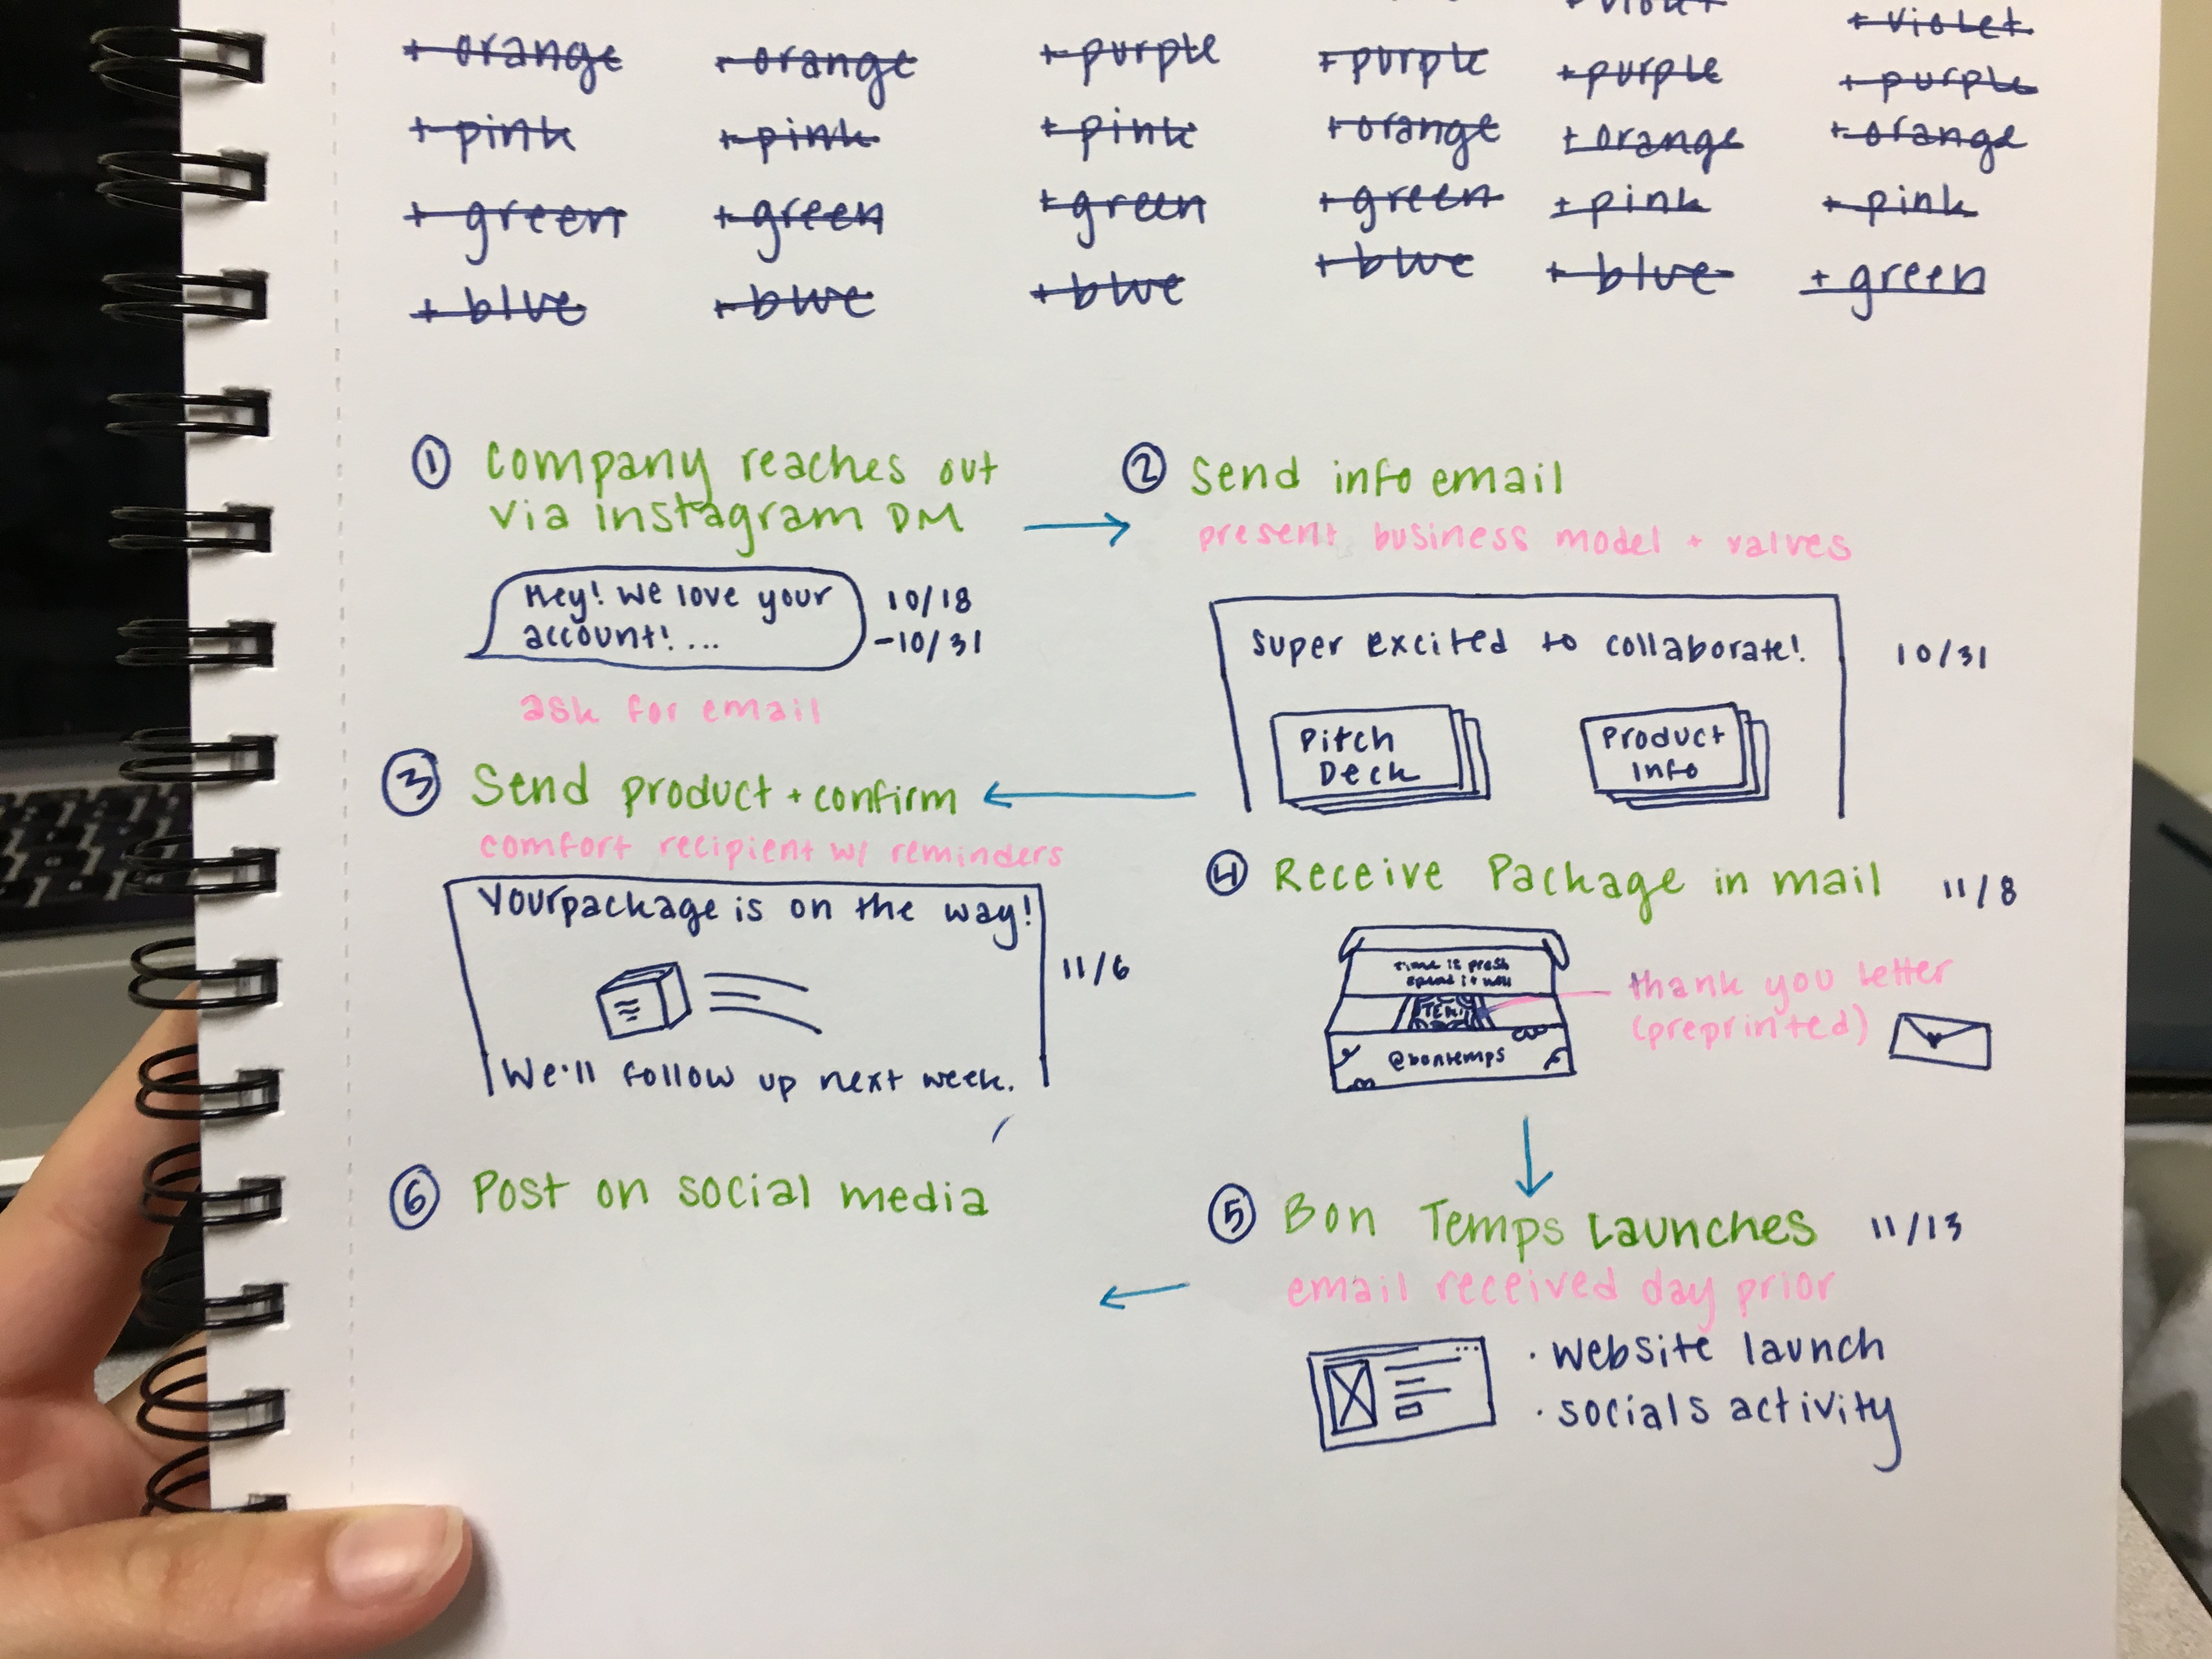 + violet
+ orange + orange + purple + purple + purple + purple
+ pink + pink + pink + orange + orange + orange
+ green + green + green + green + pink + pink
+ blue + blue + blue + blue + blue + green
① Company reaches out
via instagram DM
Hey! We love your
account! ...
10/18
-10/31
ask for email
② Send info email
present business model + values
super excited to collaborate!
10/31
Pitch
Deck
Product
Info
③ Send product + confirm
comfort recipient w/ reminders
Your package is on the way!
11/6
We'll follow up next week.
④ Receive Package in mail
11/8
spend it
@bontemps
thank you letter
(preprinted)
⑤ Bon Temps Launches
11/13
email received day prior
· website launch
· socials activity
⑥ Post on social media